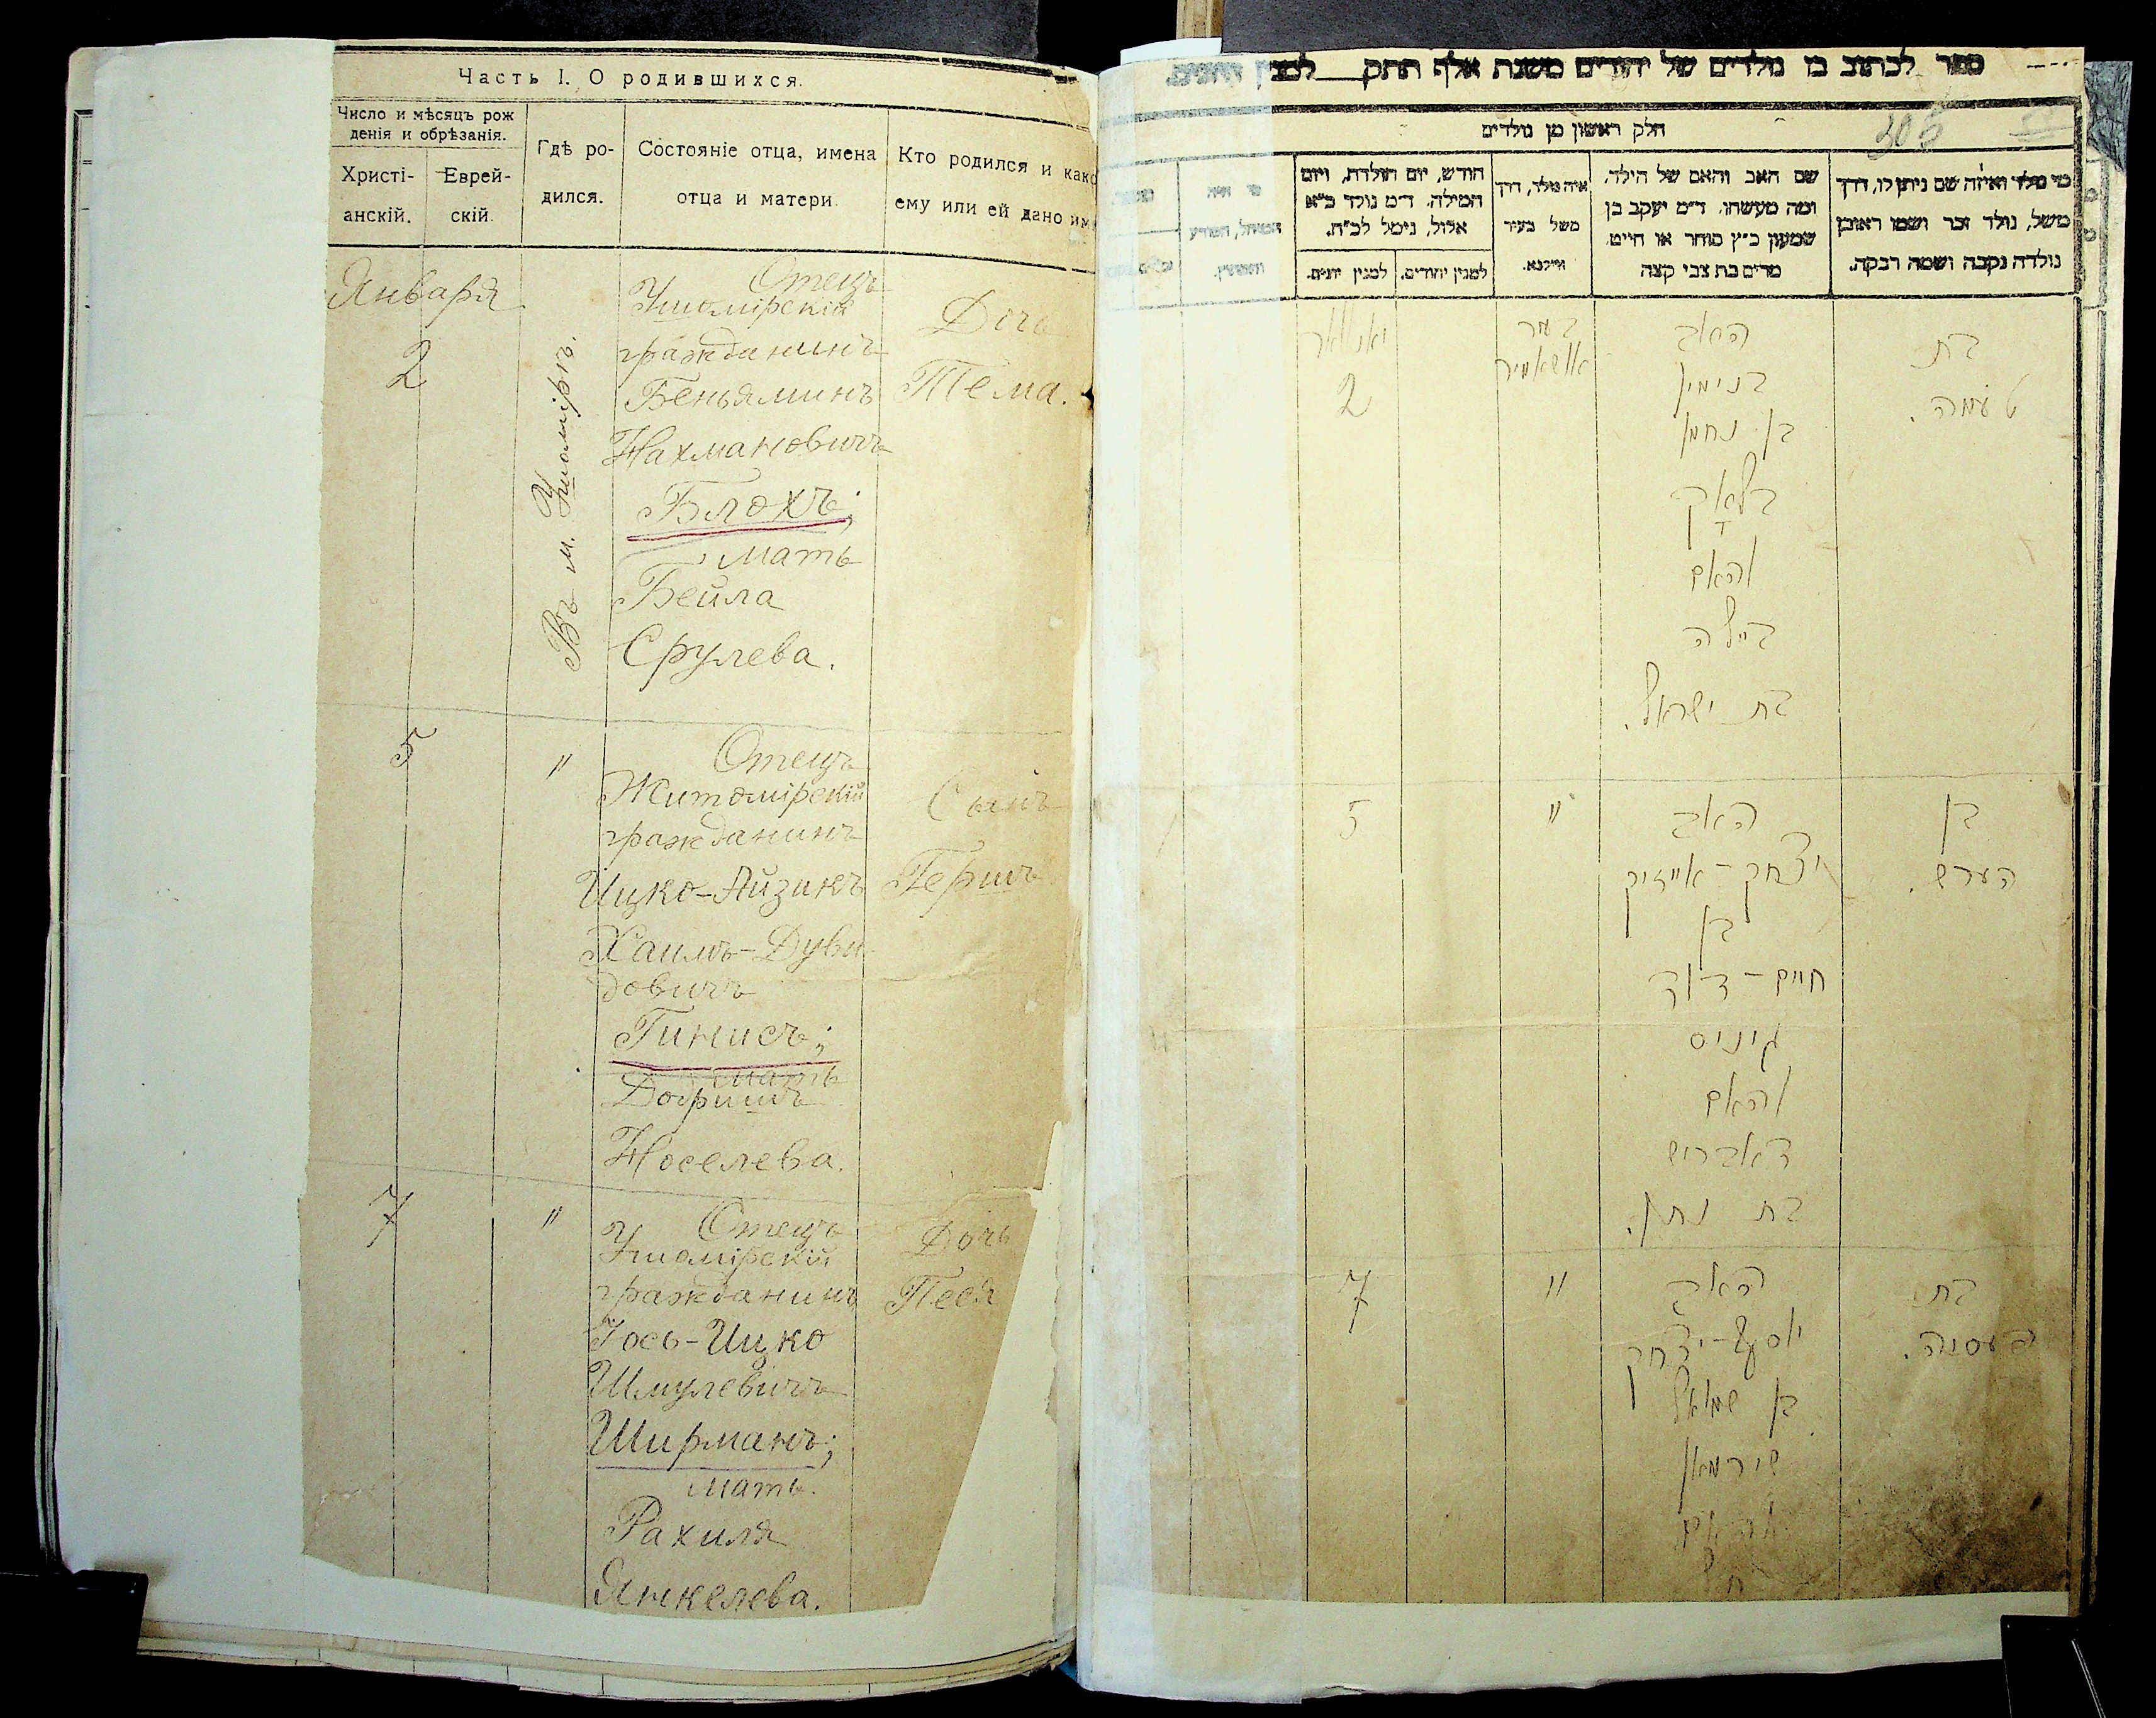 Часть I. О родившихся.
Число и мѣсяцъ рож
денія и обрѣзанія.
Христі-
анскій.
Еврей-
скій.
Гдѣ ро-
дился.
Состояніе отца, имена
отца и матери.
Кто родился и како
ему или ей дано им
Января
2
Въ м. Ушомірѣ.
Отецъ
Ушомірскій
гражданинъ
Беньяминъ
Нахмановичъ
Блохъ;
мать
Бейла
Срулева.
Дочь
Тема.
5
"
Отецъ
Житомірскій
гражданинъ
Ицко-Айзикъ
Хаимъ-Дуви
довичъ
Гинисъ;
мать
Добришъ
Носелева.
Сынъ
Гершъ
7
"
Отецъ
Ушомірскій
гражданинъ
Іось-Ицко
Шмулевичъ
Ширманъ;
мать.
Рахиля
Янкелева.
Дочь
Песя
ספר לכתוב בו נולדים של יהודים משנת אלף תתק למנין
305
חלק ראשון מן נולדים
מי מלד ואיזה שם ניתן לו, דרך
משל, נולד זכר ושמו ראובן
נולדה נקבה ושמה רבקה.
שם האב והאם של הילד,
ומה מעשהו. ד״מ יעקב בן
שמעון כ״ץ סוחר או חייט
מרים בת צבי קצה
איה מלד, דרך
משל בעיר
ווילנא.
חודש, יום תולדת, ויום
המילה. ד״מ נולד כ״א
אלול, נימל לכ״ח.
למנין יהודים.
למנין יונים.
בת
טעמה.
האב
בנימין
בן נחמן
בלאך
והאם
ביילה
בת ישראל.
בעיר
אושאמיר
יאנואר
2
בן
הערש.
האב
יצחק-אייזיק
בן
חיים-דוד
גיניס
והאם
דאבריש
בת נתן.
"
5
בת
פעסיה.
האב
יוסף-יצחק
בן שמואל
שירמאן
והאם
"
7